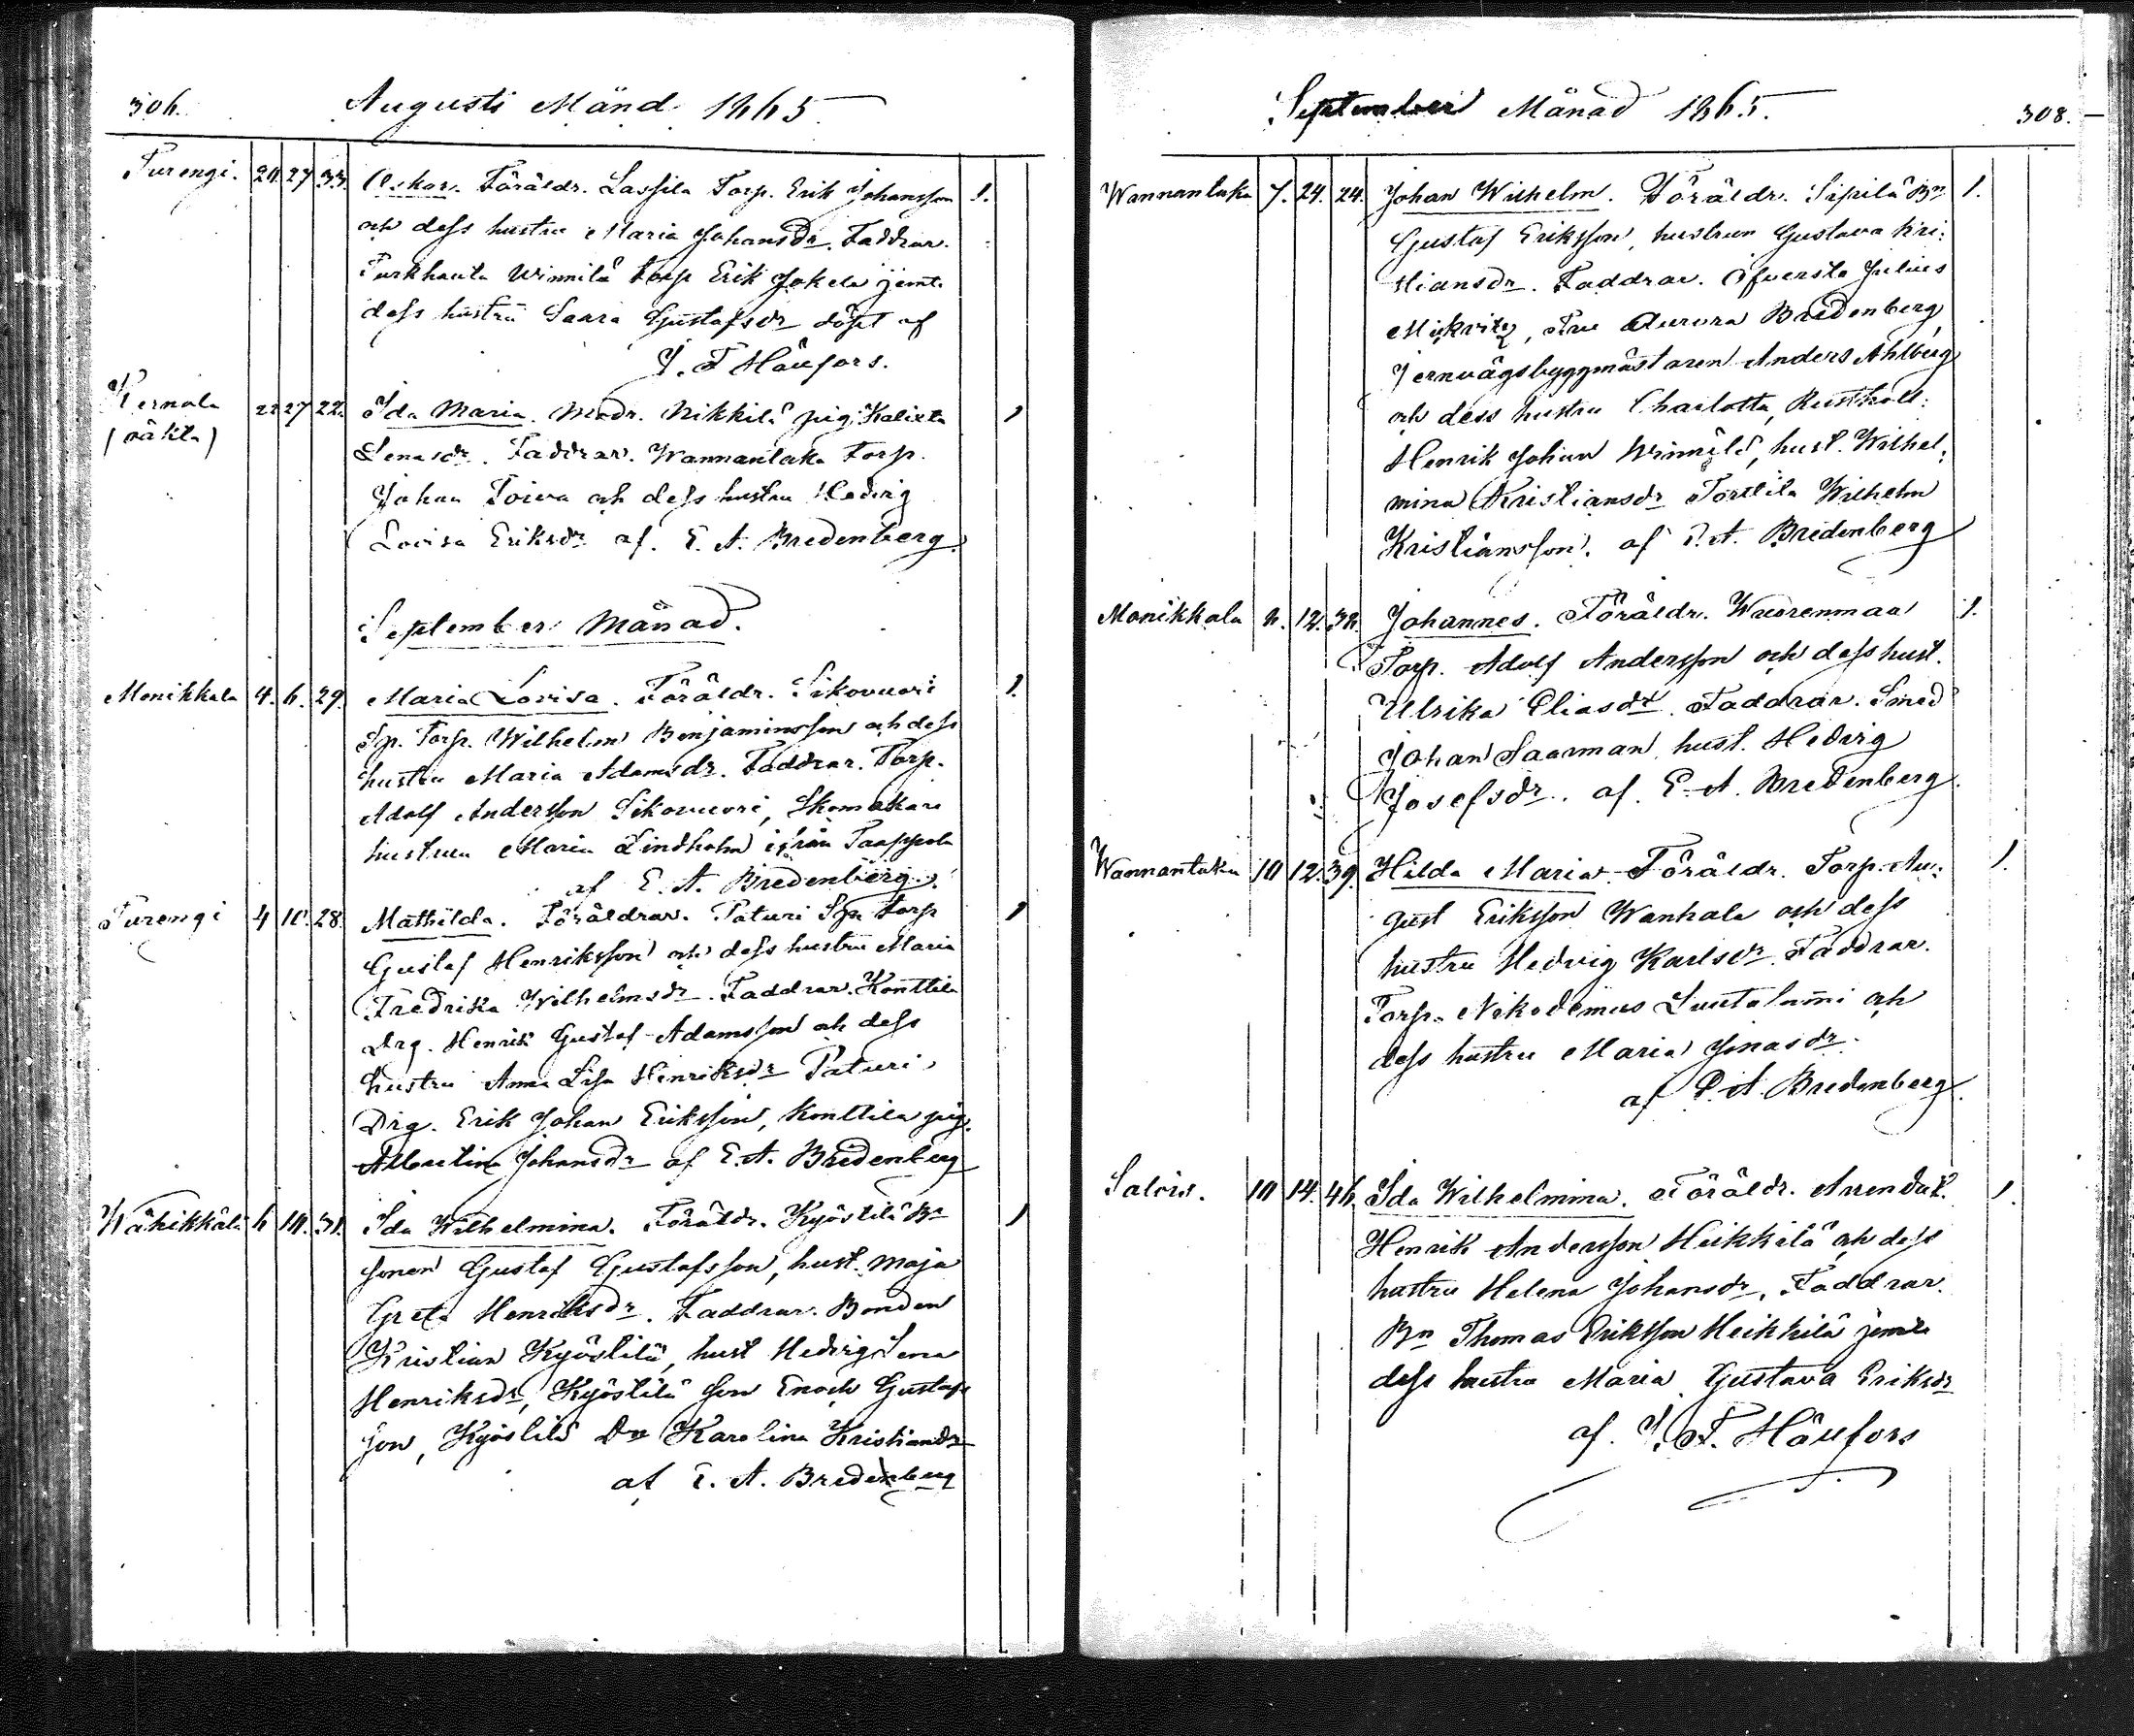 306. Augusti Månd 1865
Turengi. 20. 27 33. Oskar. Föräldr. Lassila Torp. Erik Johansson 1.
och dess hustru Maria Johansdr. Faddrar.
Turkhauta Winnilä torp Erik Jokela jemte
dess hustru Saara Gustafsdr döpt af
J. F. Häufors.
Kernala 22 27 22. Ida Maria. Modr. Nikkilä pig. 1
(oäkta) Lenasdr. Faddrar. Wannantaka torp.
Johan Toiva och dess hustru Hedvig
Lovisa Eriksdr af. E. A. Bredenberg.
September Månad.
Monikkala 4. 6. 29. Maria Lovisa. Föräldr. Sikovuori 1.
Sp. Torp. Wilhelm Benjaminsson och dess
hustru Maria Adamsdr. Faddrar. Torp.
Adolf Andersson Sikovuori, Skomakare
hustrun Maria Lindholm ifrån
af E. A. Bredenberg.
Turengi 4 10. 28. Mathilda. Föräldrar. Paturi Sp. torp 1
Gustaf Henriksson och dess hustru Maria
Fredrika Wilhelmsdr. Faddrar. Konttila
Drg. Henrik Gustaf Adamsson och dess
hustru Anna Lisa Henriksdr Paturi
Drg. Erik Johan Eriksson, Konttila pig.
Albertina Johansdr af E. A. Bredenberg
Wähikkälä 6 10. 31. Ida Wilhelmina. Föräldr. Kyöstilä Bn 1
sonen Gustaf Gustafsson, hust. Maja
Greta Henriksdr. Faddrar. Bonden
Kristian Kyöstilä, hust Hedvig Lena
Henriksdr, Kyöstilä son Enoch Gustafs
son, Kyöstilä Dr Karolina Kristiansdr
af E. A. Bredenberg
September Månad 1865. 308.
Wannantaka 7. 24. 24. Johan Wilhelm. Föräldr. Sipilä Bn 1.
Gustaf Eriksson, hustrun Gustava Kri:
stiansdr. Faddrar. Öfversta Julius
Mickvitz, Fru Aurora Bredenberg,
Jernvägsbyggmästaren Anders Ahlberg
och dess hustru Charlotta, Rusthåll:
Henrik Johan Winnilä, hust. Wilhel:
mina Kristiansdr Torttila Wilhelm
Kristiansson. af E. A. Bredenberg
Monikkala 8. 12. 38. Johannes. Föräldr. Wuorenmaa 1.
Torp. Adolf Andersson och dess hust.
Ulrika Eliasdr. Faddrar. Smed
Johan Saarman hust. Hedvig
Josefsdr. af. E. A. Bredenberg.
Wannantaka 10 12. 39. Hilda Maria. Föräldr. Torp. Au: 1.
gust Eriksson Wanhala och dess
hustru Hedvig Karlsdr. Faddrar.
Torp. Nikodemus och
dess hustru Maria Jonasdr.
af E. A. Bredenberg.
Salois. 10 14. 46. Ida Wilhelmina. Föräldr. Arrendat. 1.
Henrik Andersson Heikkilä och dess
hustru Helena Johansdr, Faddrar.
Bn Thomas Eriksson Heikkilä jemte
dess hustru Maria Gustava Eriksdr
af. J. F. Häufors